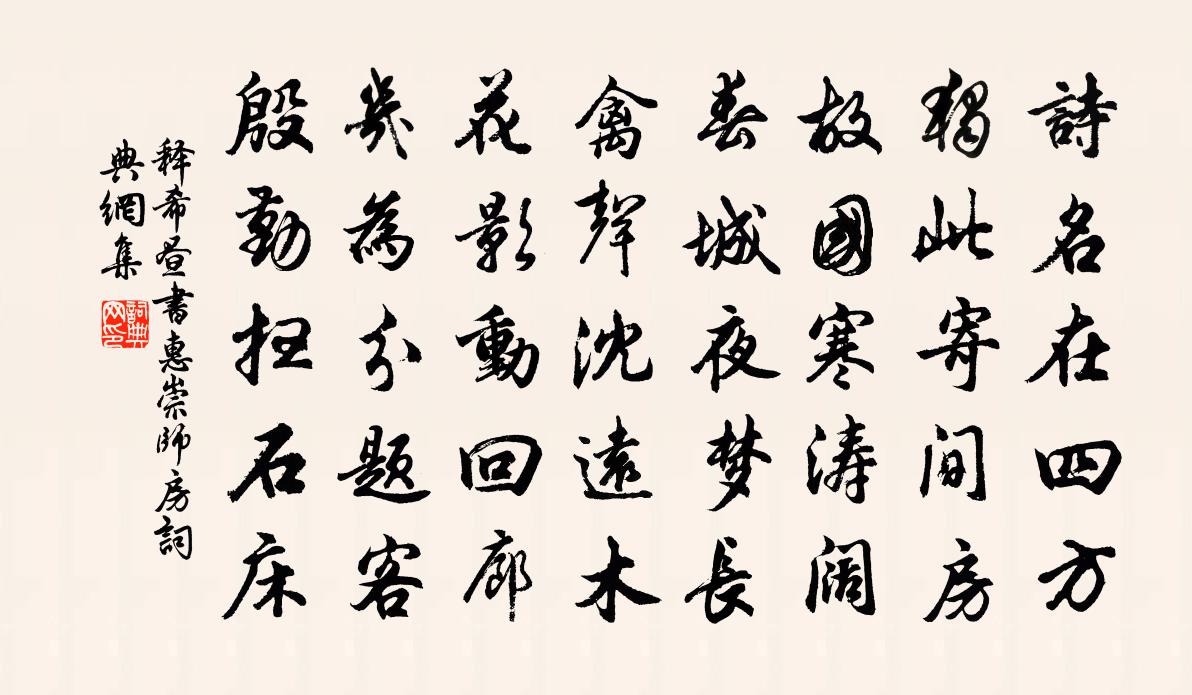 詩名在四方
獨此寄閒房
故國寒濤闊
春城夜梦長
禽聲沈遠木
花影動回廊
幾為分題客
殷勤扫石床
释希昼書惠崇師房詞
典網集
詞典
网印